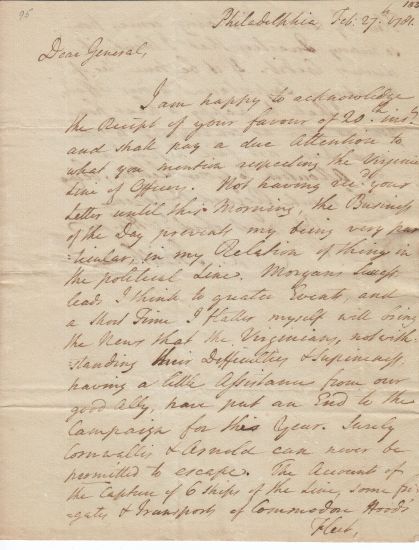 95
183
Philadelphia, Feb. 27th 1781.
Dear General,
I am happy to acknowledge
the Receipt of your favour of 20th inst
and shall pay a due Attention to
what you mention respecting the Virginia
Line of Officers. Not having recd your
Letter until this Morning, the Business
of the Day prevents my being very par
=ticular, in my Relation of things in
the political Line. Morgans success
leads I think to greater Events, and
a short Time I flatter myself will bring
the News that the Virginians, notwith
=standing their Difficulties & Supineness
having a little Assistance from our
good Ally, have put an End to the
Campaign for this Year. Surely
Cornwallis & Arnold can never be
permitted to escape. The Account of
the Capture of 6 Ships of the Line, some fri
=gates & Transports of Commodore Hoods
Fleet,